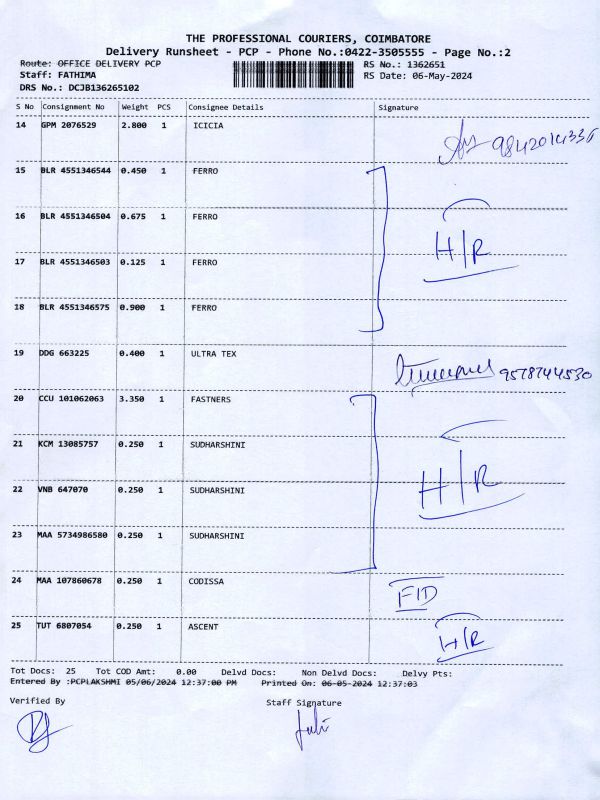 THE PROFESSIONAL COURIERS, COIMBATORE
Delivery Runsheet - PCP - Phone No.:0422-3505555 - Page No.:2
Route: OFFICE DELIVERY PCP
RS No.: 1362651
Staff: FATHIMA
RS Date: 06-May-2024
DRS No.: DCJB136265102
S No Consignment No Weight PCS Consignee Details Signature
14 GPM 2076529 2.800 1 ICICIA
15 BLR 4551346544 0.450 1 FERRO
16 BLR 4551346504 0.675 1 FERRO
H/R
17 BLR 4551346503 0.125 1 FERRO
18 BLR 4551346575 0.900 1 FERRO
19 DDG 663225 0.400 1 ULTRA TEX
9578744530
20 CCU 101062063 3.350 1 FASTNERS
21 KCM 13085757 0.250 1 SUDHARSHINI
H/R
22 VNB 647070 0.250 1 SUDHARSHINI
23 MAA 5734986580 0.250 1 SUDHARSHINI
24 MAA 107860678 0.250 1 CODISSA
FID
25 TUT 6807054 0.250 1 ASCENT
H/R
Tot Docs: 25 Tot COD Amt: 0.00 Delvd Docs: Non Delvd Docs: Delvy Pts:
Entered By :PCPLAKSHMI 05/06/2024 12:37:00 PM Printed On: 06-05-2024 12:37:03
Verified By Staff Signature